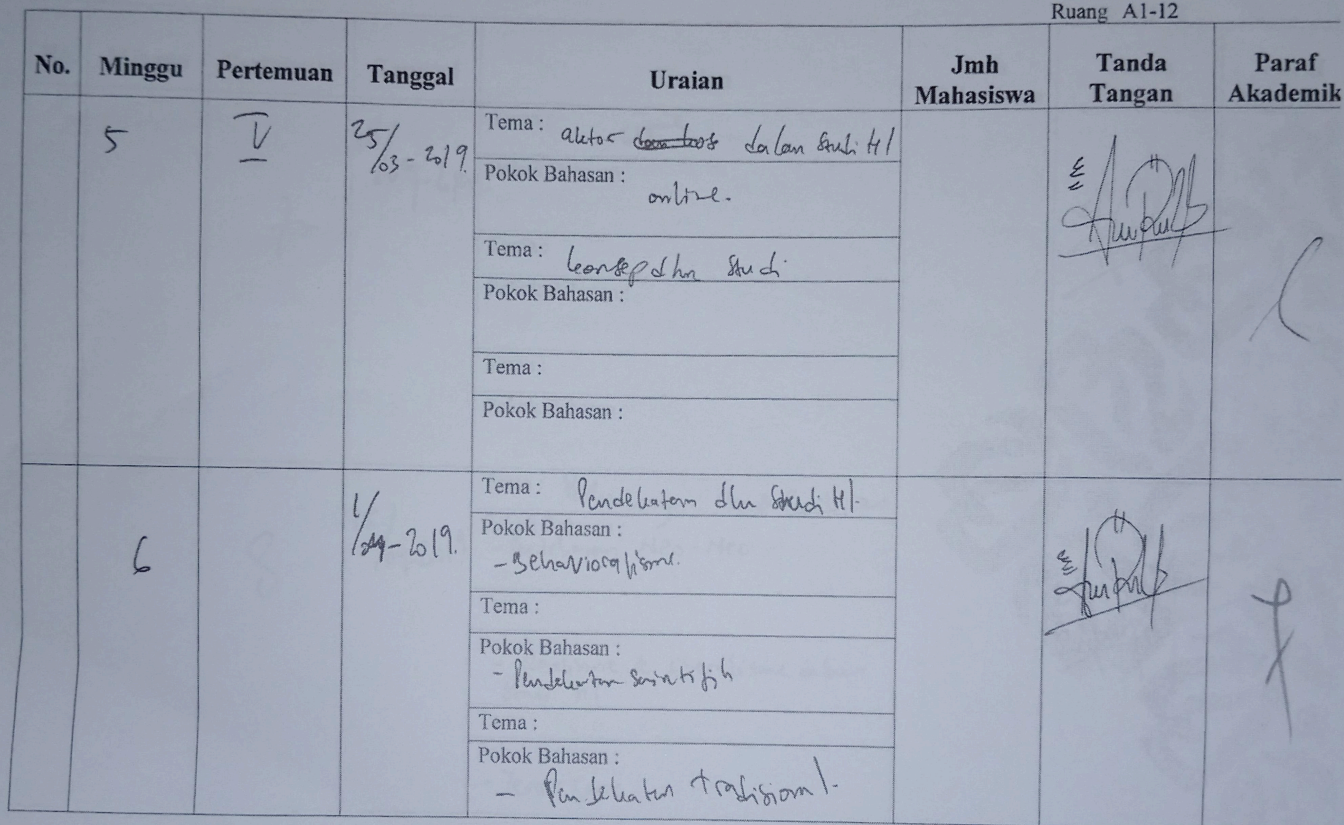 Ruang A1-12
No. Minggu Pertemuan Tanggal Uraian Jmh Mahasiswa Tanda Tangan Paraf Akademik
5 V 25/03-2019. Tema : aktor dalam studi HI
Pokok Bahasan :
online.
Tema : konsep dlm studi
Pokok Bahasan :
Tema :
Pokok Bahasan :
6 1/04-2019. Tema : Pendekatan dlm studi HI.
Pokok Bahasan :
- Behavioralisme.
Tema :
Pokok Bahasan :
- Pendekatan saintifik
Tema :
Pokok Bahasan :
- Pendekatan tradisional.